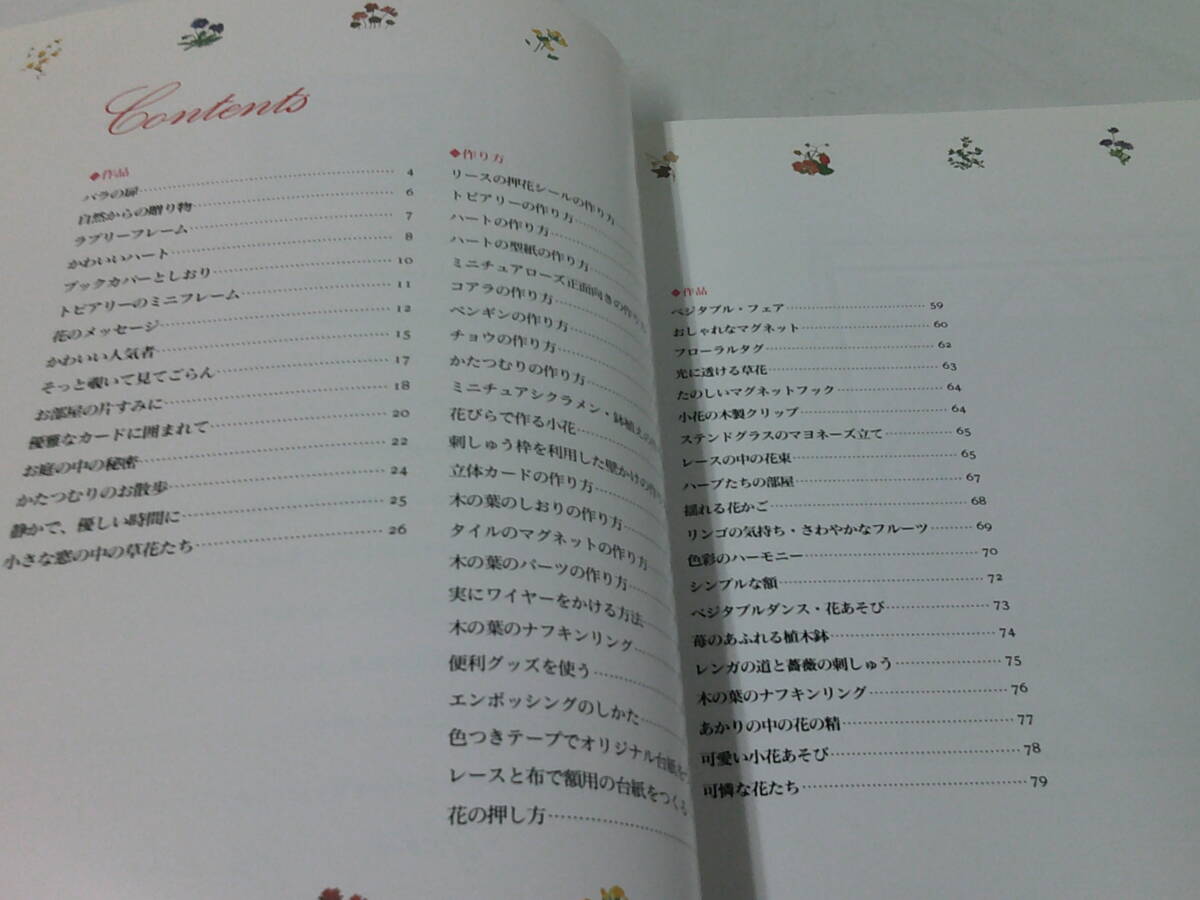 Contents
◆作品
バラの扉 4
自然からの贈り物 6
ラブリーフレーム 7
かわいいハート 8
ブックカバーとしおり 10
トピアリーのミニフレーム 11
花のメッセージ 12
かわいい人気者 15
そっと覗いて見てごらん 17
お部屋の片すみに 18
優雅なカードに囲まれて 20
お庭の中の秘密 22
かたつむりのお散歩 24
静かで、優しい時間に 25
小さな窓の中の草花たち 26
◆作り方
リースの押花シールの作り方
トピアリーの作り方
ハートの作り方
ハートの型紙の作り方
ミニチュアローズ正面向きの作り方
コアラの作り方
ペンギンの作り方
チョウの作り方
かたつむりの作り方
ミニチュアシクラメン・鉢植えの
花びらで作る小花
刺しゅう枠を利用した壁かけの作り
立体カードの作り方
木の葉のしおりの作り方
タイルのマグネットの作り方
木の葉のパーツの作り方
実にワイヤーをかける方法
木の葉のナフキンリング
便利グッズを使う
エンボッシングのしかた
色つきテープでオリジナル台紙を
レースと布で額用の台紙をつくる
花の押し方
◆作品
ベジタブル・フェア 59
おしゃれなマグネット 60
フローラルタグ 62
光に透ける草花 63
たのしいマグネットフック 64
小花の木製クリップ 64
ステンドグラスのマヨネーズ立て 65
レースの中の花束 65
ハーブたちの部屋 67
揺れる花かご 68
リンゴの気持ち・さわやかなフルーツ 69
色彩のハーモニー 70
シンプルな額 72
ベジタブルダンス・花あそび 73
苺のあふれる植木鉢 74
レンガの道と薔薇の刺しゅう 75
木の葉のナフキンリング 76
あかりの中の花の精 77
可愛い小花あそび 78
可憐な花たち 79